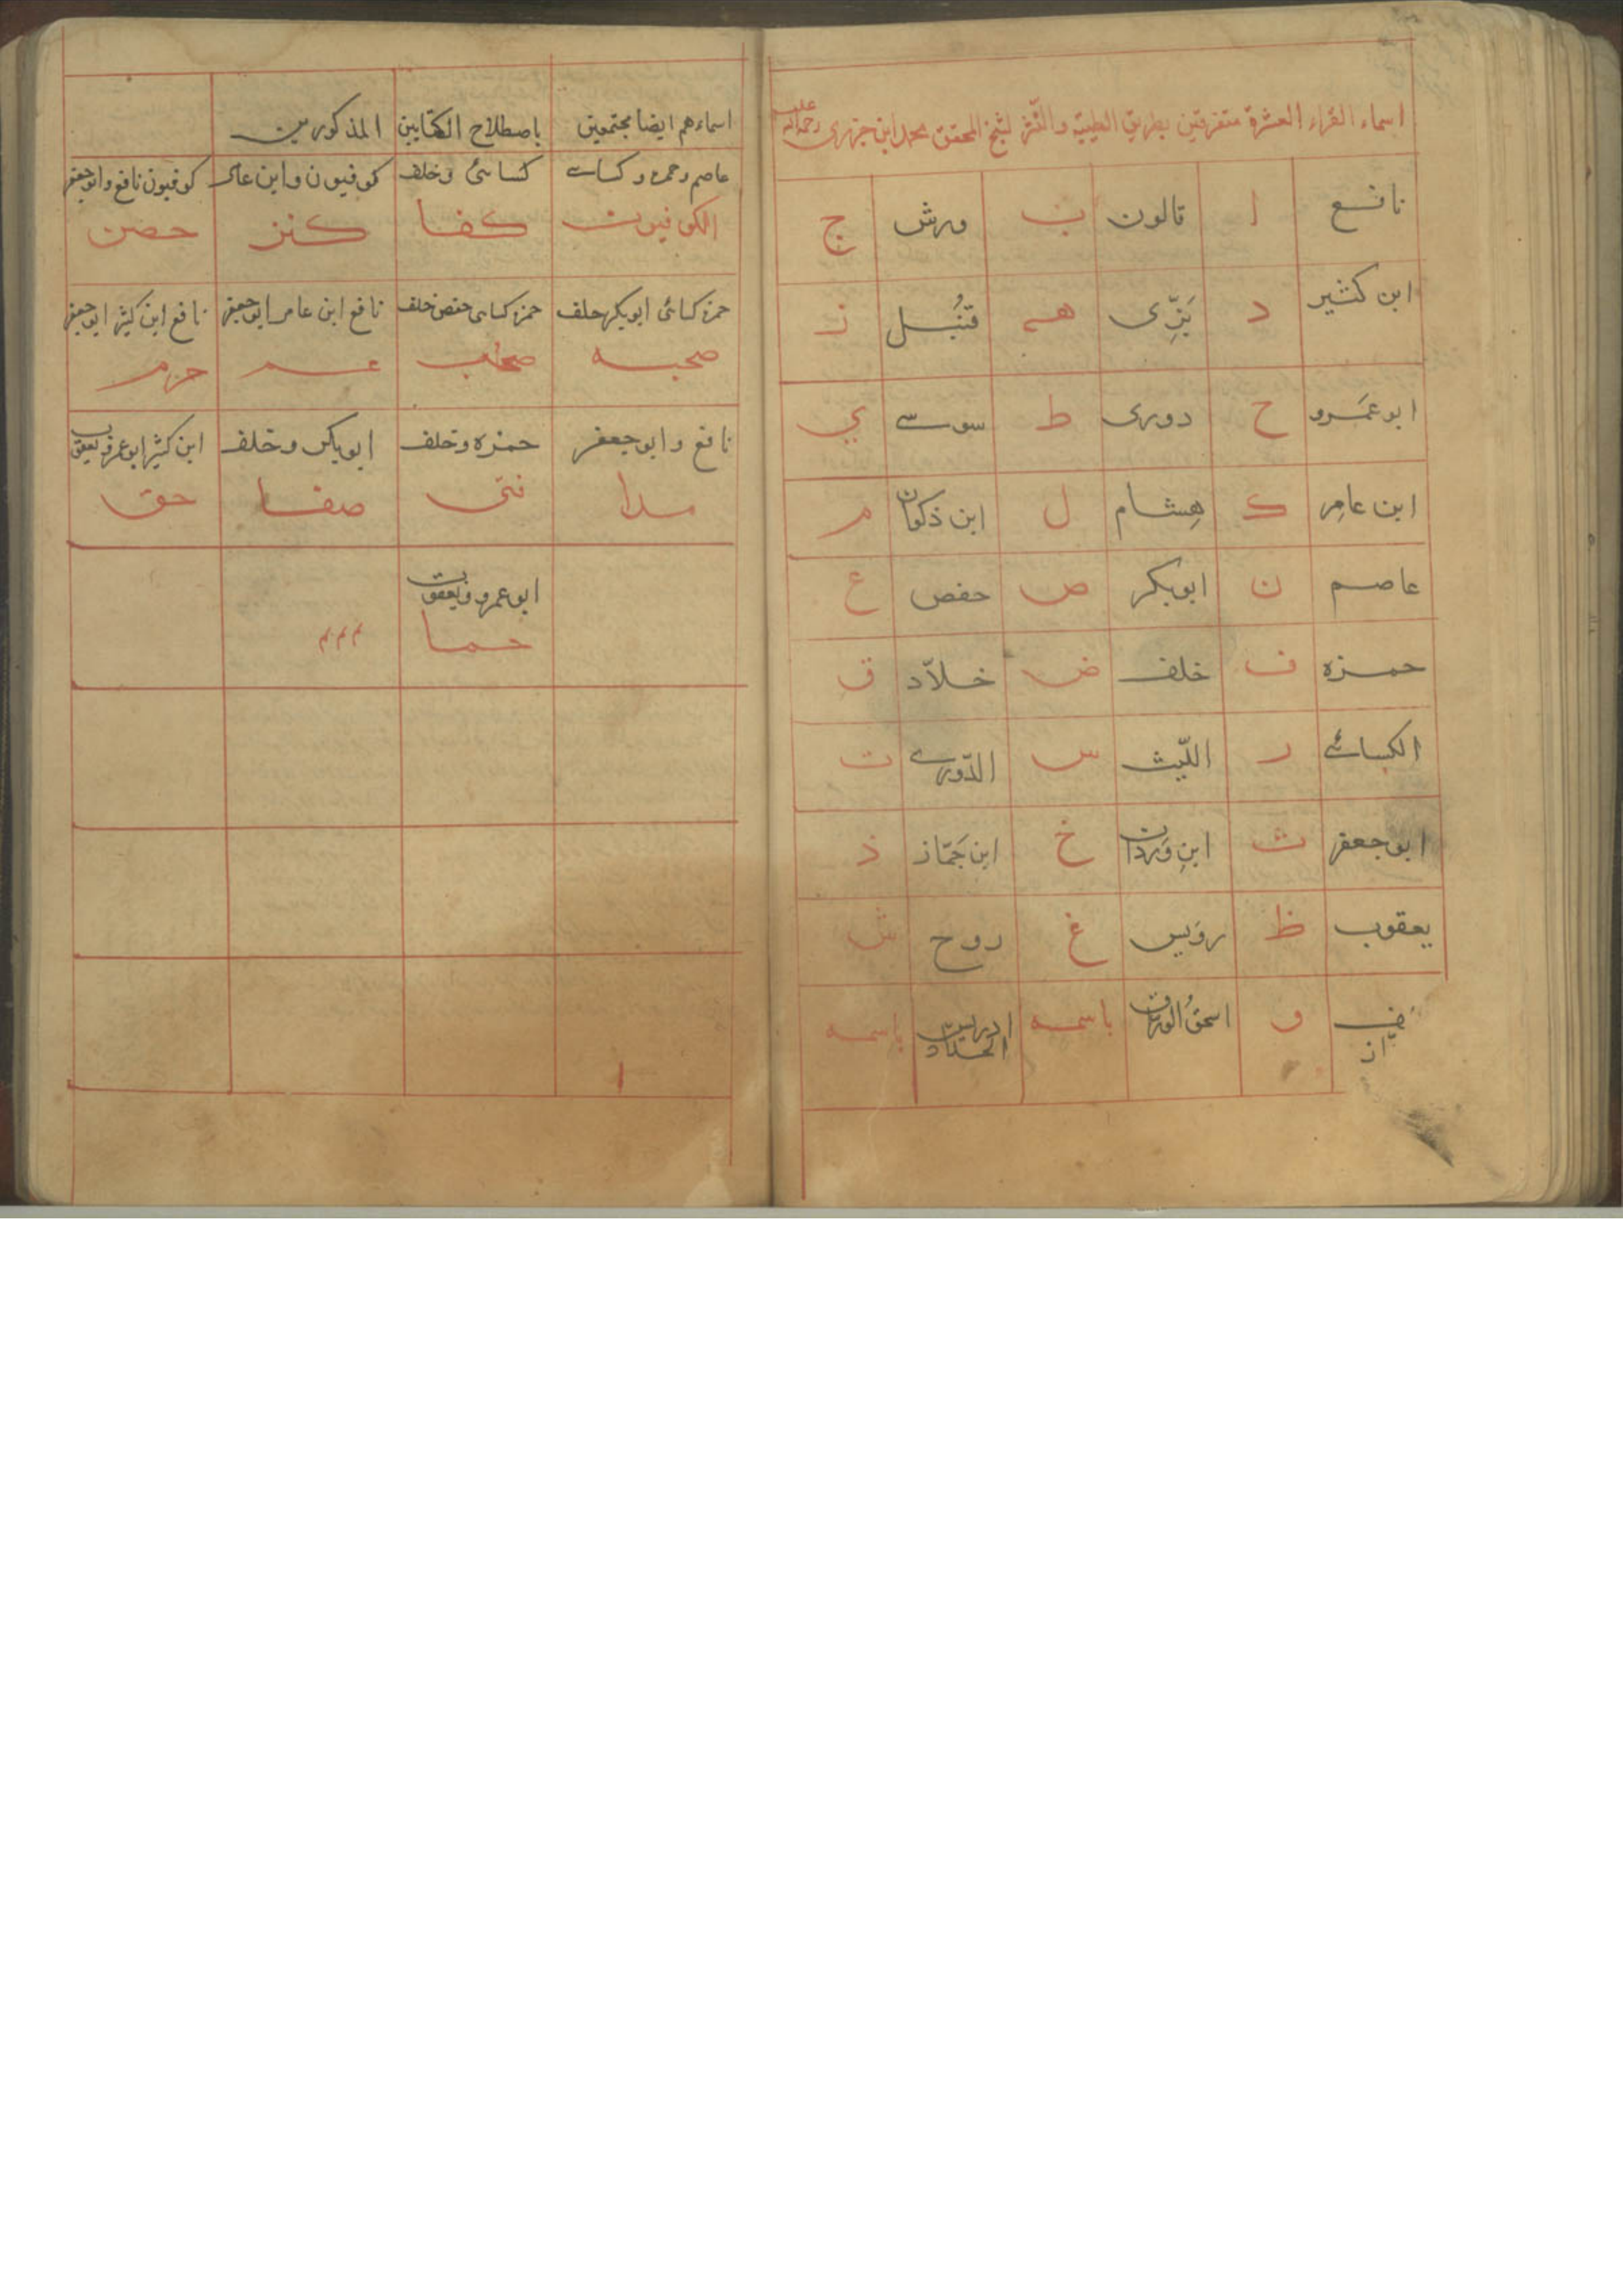 اسماء القراء العشرة متفرقين بطريق الطيبة والنشر لشيخ المحقق محمد ابن جزرى رحمة الله عليه
نافع ا قالون ب ورش ج
ابن كثير د بَزِّى هـ قُنْبُل ز
ابو عمرو ح دورى ط سوسے ي
ابن عامر ك هشام ل ابن ذكوان م
عاصم ن ابوبكر ص حفص ع
حمزه ف خلف ض خلاّد ق
الكسائے ر اللّيث س الدّورے ت
ابو جعفر ث ابن وردان خ ابن جَمّاز ذ
يعقوب ظ رويس غ روح ش
اسحق الوراق باسمه ادريس الحداد باسمه
اسماءهم ايضا مجتمعين باصطلاح الكتابين المذكورين
عاصم وحمزه وكساے كسائى وخلف كوفيون وابن عامر كوفيون نافع وابوجعفر
الكوفيون كفا كنز حصن
حمزه كسائى ابوبكر خلف حمزه كسائى حفص خلف نافع ابن عامر ابوجعفر نافع ابن كثير ابوجعفر
صحبه صحب عم حرم
نافع وابو جعفر حمزه وخلف ابوبكر وخلف ابن كثير ابوعمرو يعقوب
مدا فتى صفا حق
ابو عمرو ويعقوب
حما